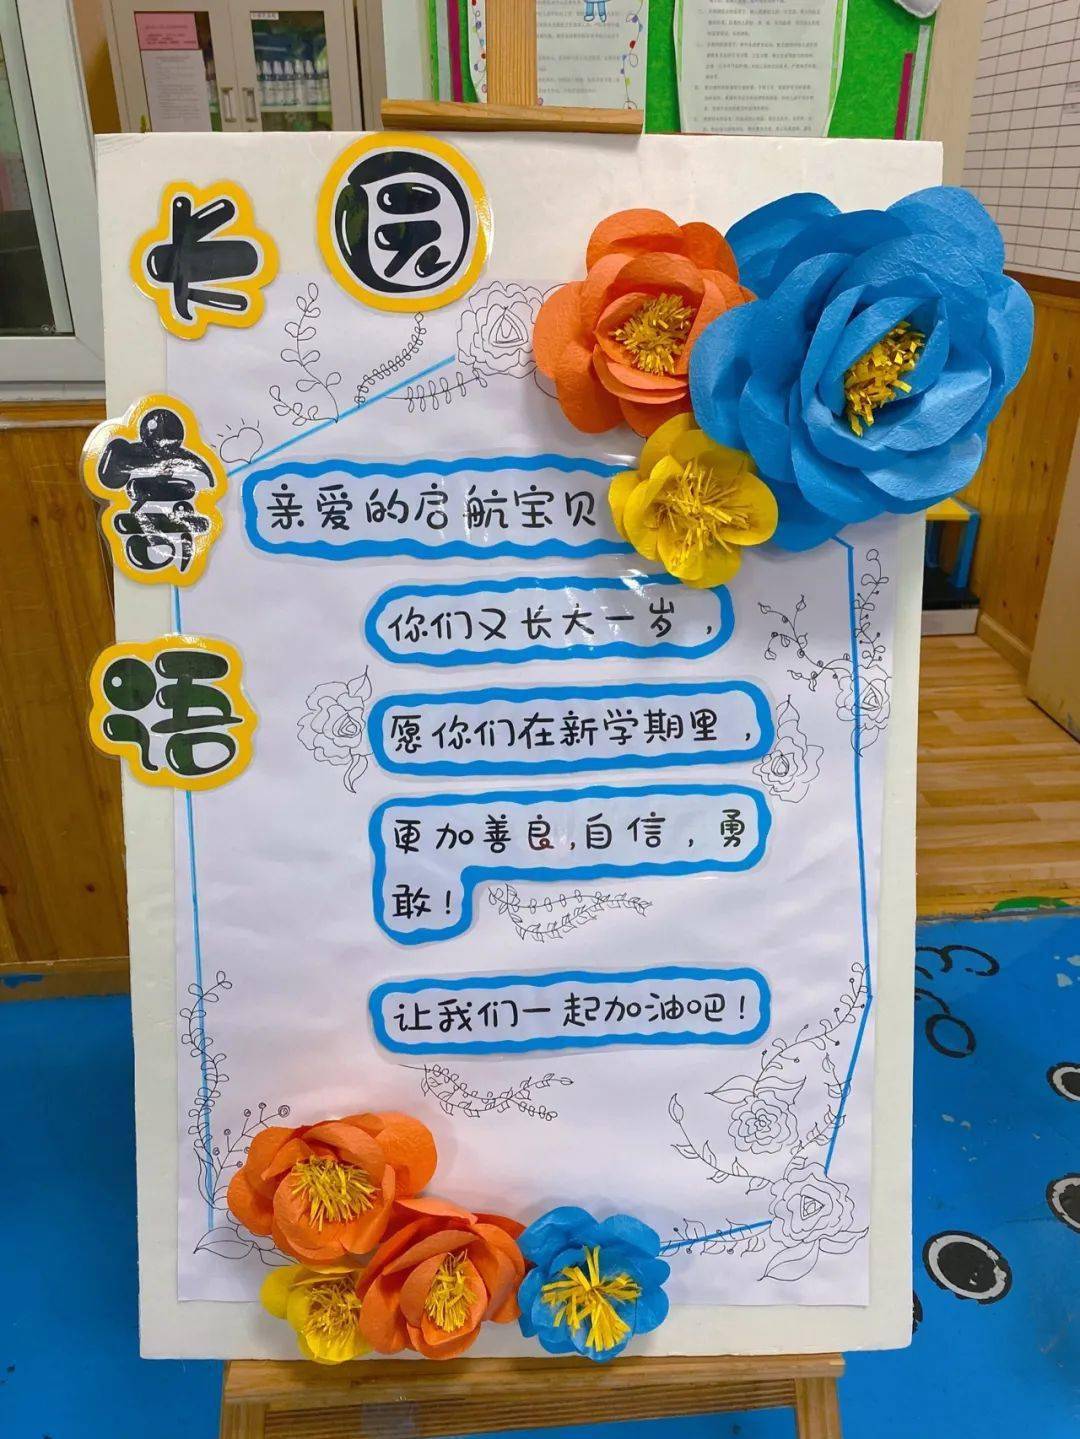 长园
寄
语
亲爱的启航宝贝
你们又长大一岁，
愿你们在新学期里，
更加善良,自信，勇
敢！
让我们一起加油吧！